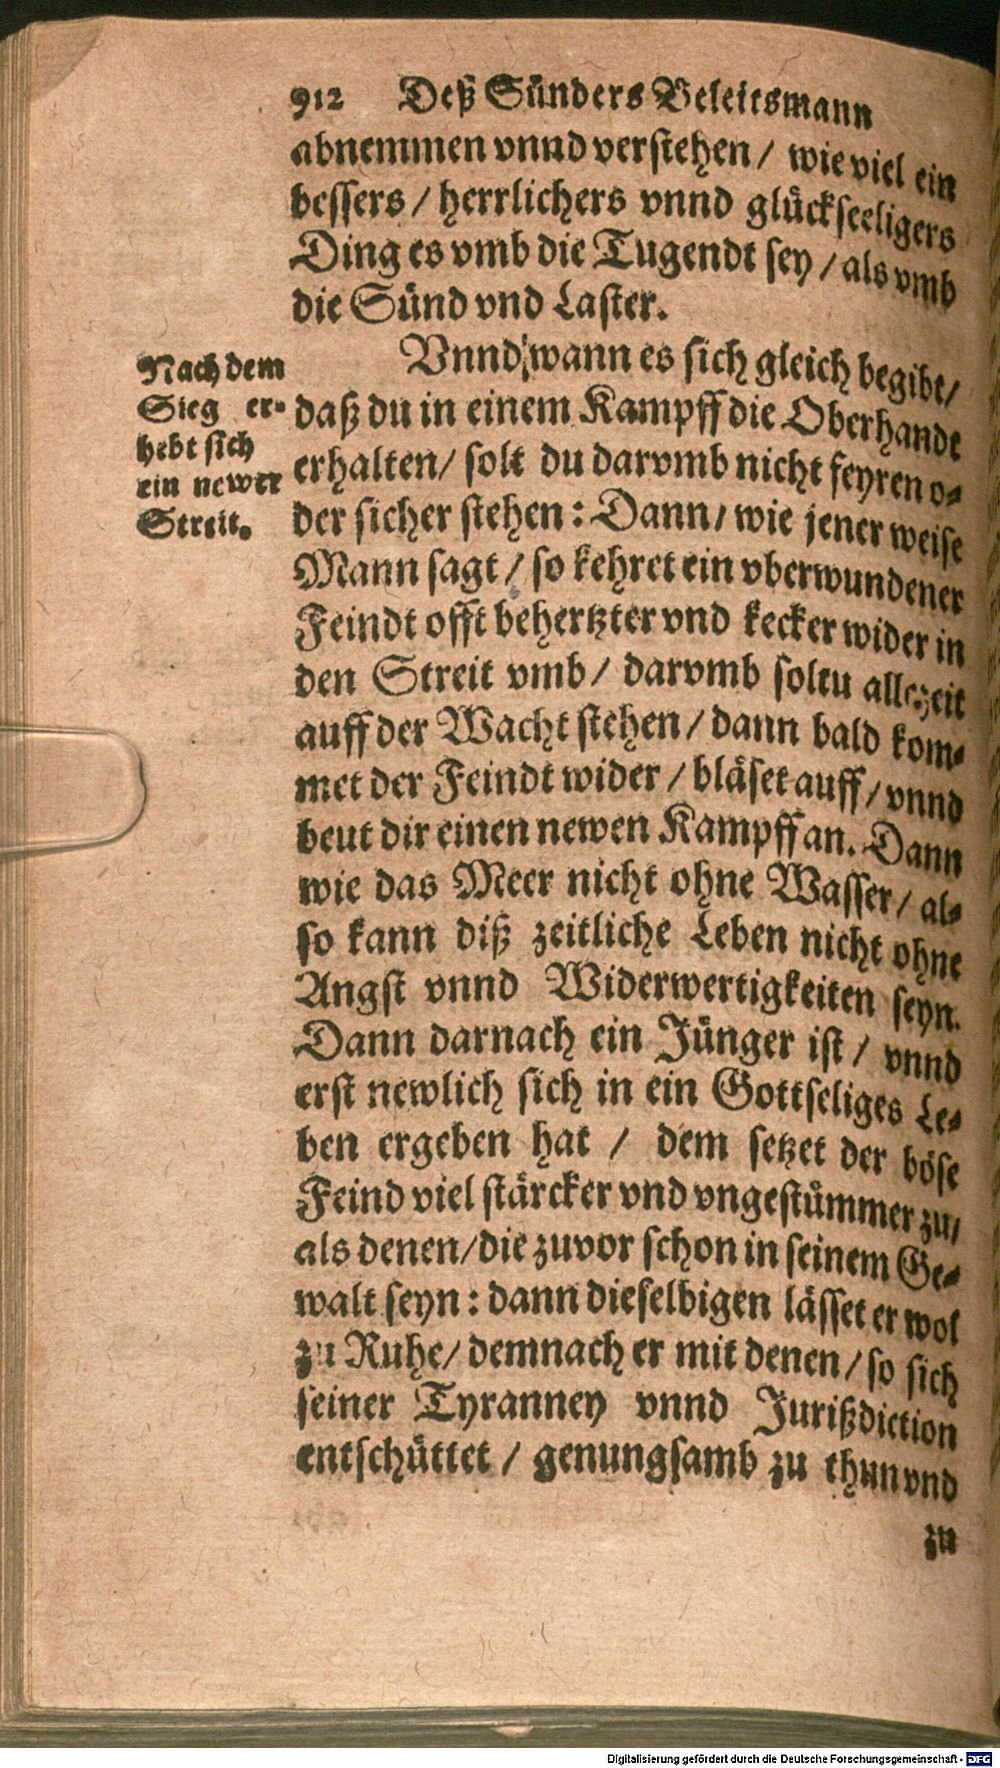 912 Deß Sünders Beleitsmann
abnemmen vnnd verstehen / wie viel ein
bessers / herrlichers vnnd glückseeligers
Ding es vmb die Tugendt sey / als vmb
die Sünd vnd Laster.
Vnnd wann es sich gleich begibt/
daß du in einem Kampff die Oberhandt
erhalten/ solt du darvmb nicht feyren o-
der sicher stehen: Dann/ wie jener weise
Mann sagt / so kehret ein vberwundener
Feindt offt behertzter vnd kecker wider in
den Streit vmb / darvmb soltu allezeit
auff der Wacht stehen / dann bald kom-
met der Feindt wider / bläset auff / vnnd
beut dir einen newen Kampff an. Dann
wie das Meer nicht ohne Wasser / al-
so kann diß zeitliche Leben nicht ohne
Angst vnnd Widerwertigkeiten seyn.
Dann darnach ein Jünger ist / vnnd
erst newlich sich in ein Gottseliges Le-
ben ergeben hat / dem setzet der böse
Feind viel stärcker vnd vngestümmer zu/
als denen/die zuvor schon in seinem Ge-
walt seyn: dann dieselbigen lässet er wol
zu Ruhe/ demnach er mit denen / so sich
seiner Tyranney vnnd Jurißdiction
entschüttet / genungsamb zu thun vnd
zu
Nach dem
Sieg er-
hebt sich
ein newer
Streit.
Digitalisierung gefördert durch die Deutsche Forschungsgemeinschaft - DFG